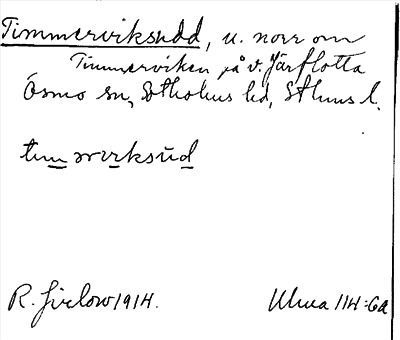 Timmerviksudd, u. norr om
Timmerviken på v. Järflotta
Ösmo sn, Sotholms hd, Sthlms l.
R. Jirlow 1914.
Ulma 114:6a